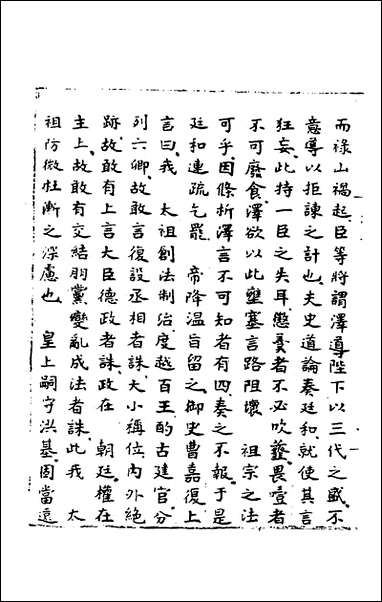 而祿山禍起臣等將謂澤導陛下以三代之盛不
意導以拒諫之計也夫史道論奏廷和就使其言
狂妄此特一臣之失耳懲羹者不必吹虀畏噎者
不可廢食澤欲以此壅塞言路阻壞 祖宗之法
可乎因條析澤言不可知者有四奏之不報于是
廷和連疏乞罷 帝降溫旨留之御史曹嘉復上
言曰我 太祖創法制治度越百王酌古建官分
列六卿故敢言復設丞相者誅大小稱位內外絕
跡故敢有上言大臣德政者誅政在 朝廷權在
主上故敢有交結朋黨變亂成法者誅此我 太
祖防微杜漸之深慮也 皇上嗣守洪基固當遠